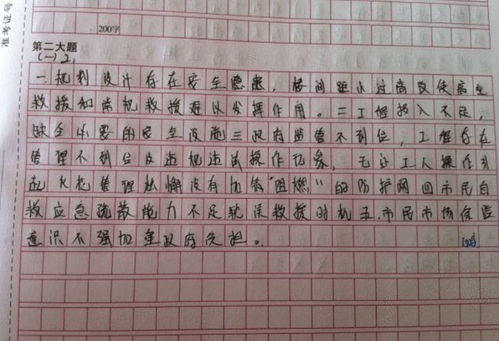 准考证号
200字
第二大题
(一)2、
一规划设计存在安全隐患,楼间距小过高致使高空
救援和降机救援难以发挥作用。二工程投入不足,
缺少必要的安全设施三政府监管不到位,工程存在
管理不到位及违规违法操作现象,无证工人操作引
起火把管理松懈没有加装“阻燃”的防护网四市民自
救应急疏散能力不足耽误救援时机五市民市场保险
意识不强加重政府负担。